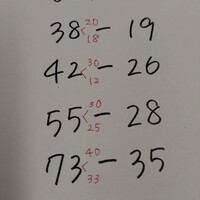 38 < 20 18 - 19
42 < 30 12 - 26
55 < 30 25 - 28
73 < 40 33 - 35